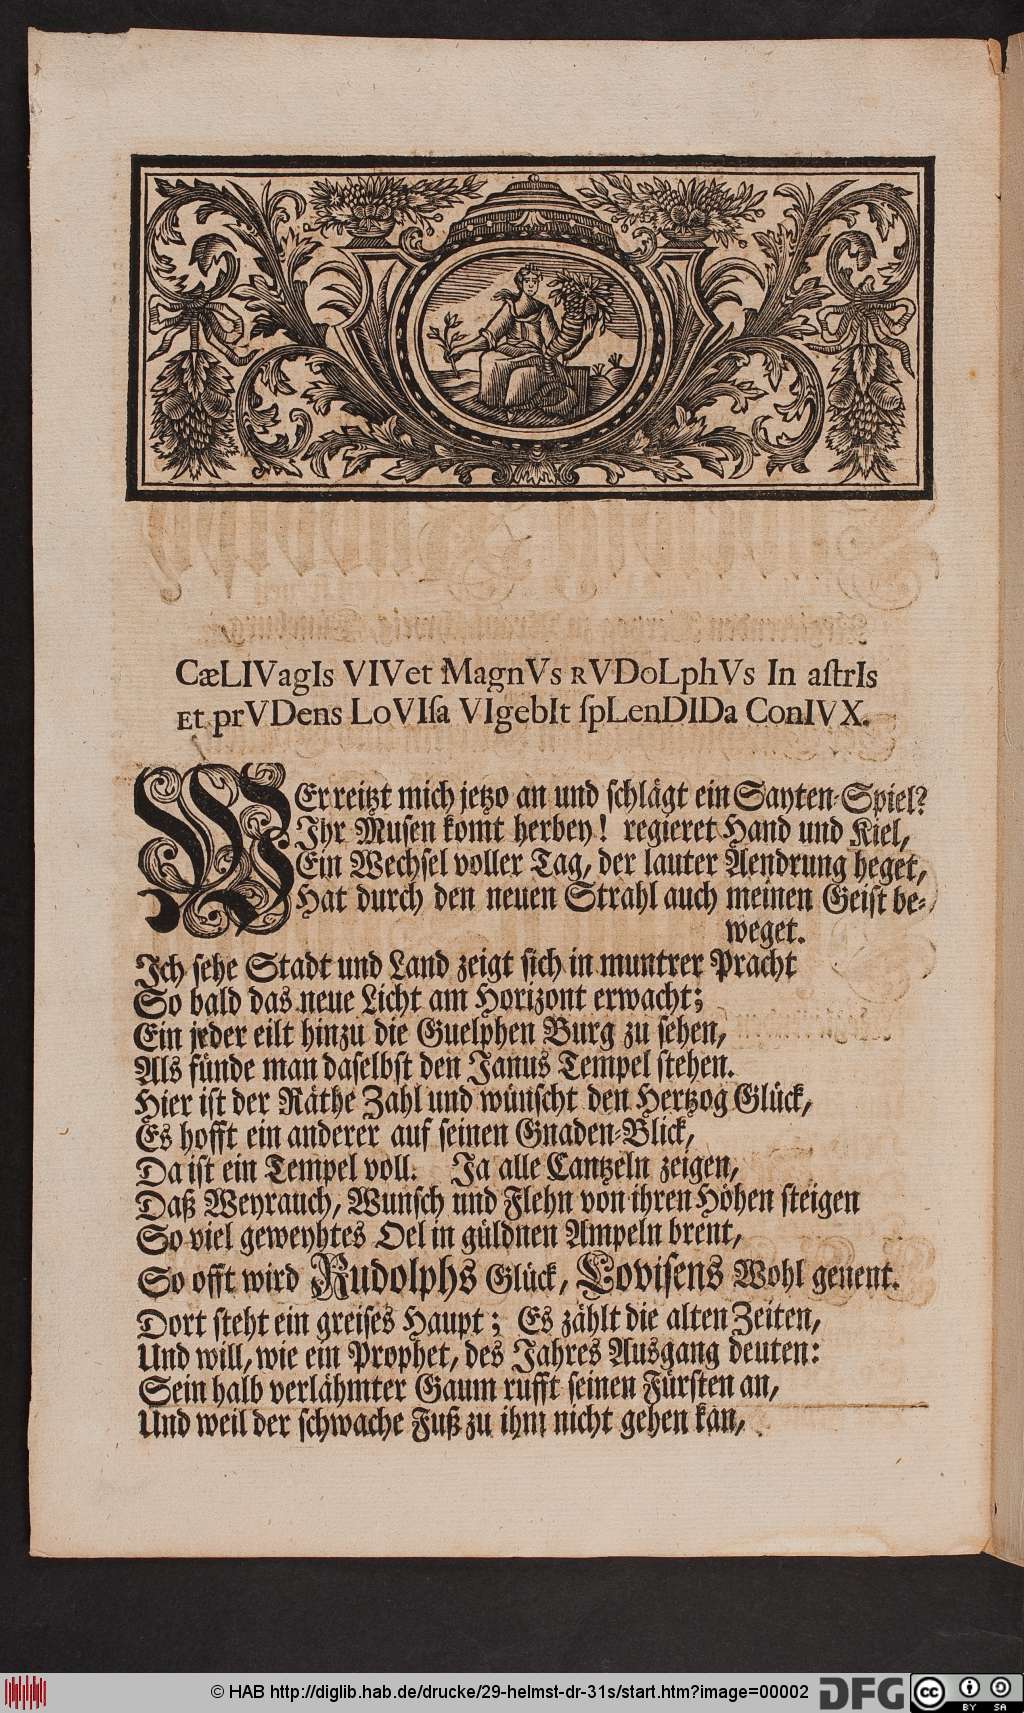 CæLIVagIs VIVet MagnVs RVDoLphVs In aſtrIs
Et prVDens LoVIſa VIgebIt ſpLenDIDa ConIVX.
WEr reitzt mich jetzo an und ſchlägt ein Sayten-Spiel?
Ihr Muſen komt herbey! regieret Hand und Kiel,
Ein Wechſel voller Tag, der lauter Aendrung heget,
Hat durch den neuen Strahl auch meinen Geiſt be-
weget.
Ich ſehe Stadt und Land zeigt ſich in muntrer Pracht
So bald das neue Licht am Horizont erwacht;
Ein jeder eilt hinzu die Guelphen Burg zu ſehen,
Als fünde man daſelbſt den Janus Tempel ſtehen.
Hier iſt der Räthe Zahl und wünſcht den Hertzog Glück,
Es hofft ein anderer auf ſeinen Gnaden-Blick,
Da iſt ein Tempel voll. Ja alle Cantzeln zeigen,
Daß Weyrauch, Wunſch und Flehn von ihren Höhen ſteigen
So viel geweyhtes Oel in güldnen Ampeln brent,
So offt wird Rudolphs Glück, Loviſens Wohl genent.
Dort ſteht ein greiſes Haupt; Es zählt die alten Zeiten,
Und will, wie ein Prophet, des Jahres Ausgang deuten:
Sein halb verlähmter Gaum rufft ſeinen Fürſten an,
Und weil der ſchwache Fuß zu ihm nicht gehen kan,
© HAB http://diglib.hab.de/drucke/29-helmst-dr-31s/start.htm?image=00002
DFG
cc
BY SA